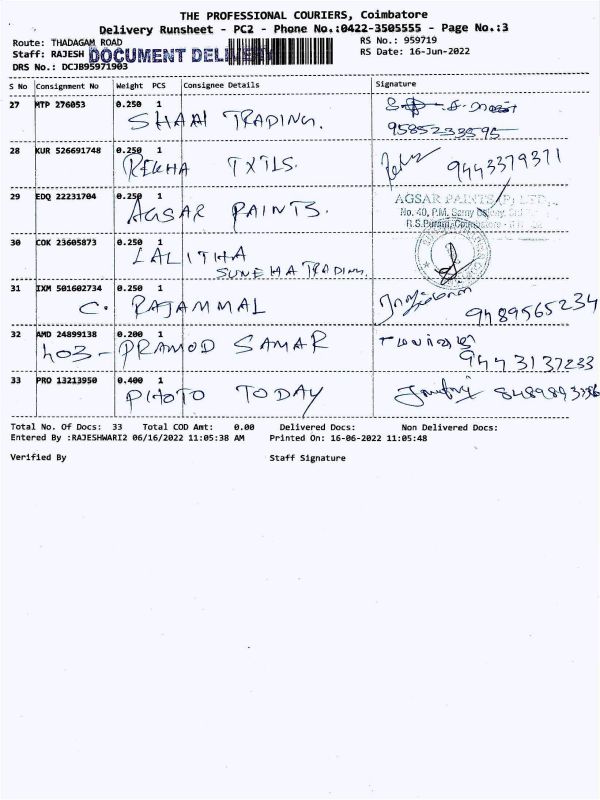 THE PROFESSIONAL COURIERS, Coimbatore
Delivery Runsheet - PC2 - Phone No.:0422-3505555 - Page No.:3
Route: THADAGAM ROAD
RS No.: 959719
Staff: RAJESH DOCUMENT DELIVE
RS Date: 16-Jun-2022
DRS No.: DCJB95971903
S No Consignment No Weight PCS Consignee Details Signature
27 MTP 276053 0.250 1
SHAH TRADING.
9585233595
28 KUR 526691748 0.250 1
REKHA TXTLS. 9443379371
29 EDQ 22231704 0.250 1
AGSAR PAINTS. AGSAR PAINTS (P) LTD.,
No. 40, P.M. Samy
R.S.Puram, Coimbatore
30 COK 23605873 0.250 1
LALITHA
SUNEHA TRADING.
31 IXM 501602734 0.250 1
C. RAJAMMAL 9489565234
32 AMD 24899138 0.200 1
403 - PRAMOD SAMAR
9443137233
33 PRO 13213950 0.400 1
PHOTO TODAY
Total No. Of Docs: 33 Total COD Amt: 0.00 Delivered Docs: Non Delivered Docs:
Entered By :RAJESHWARI2 06/16/2022 11:05:38 AM Printed On: 16-06-2022 11:05:48
Verified By Staff Signature